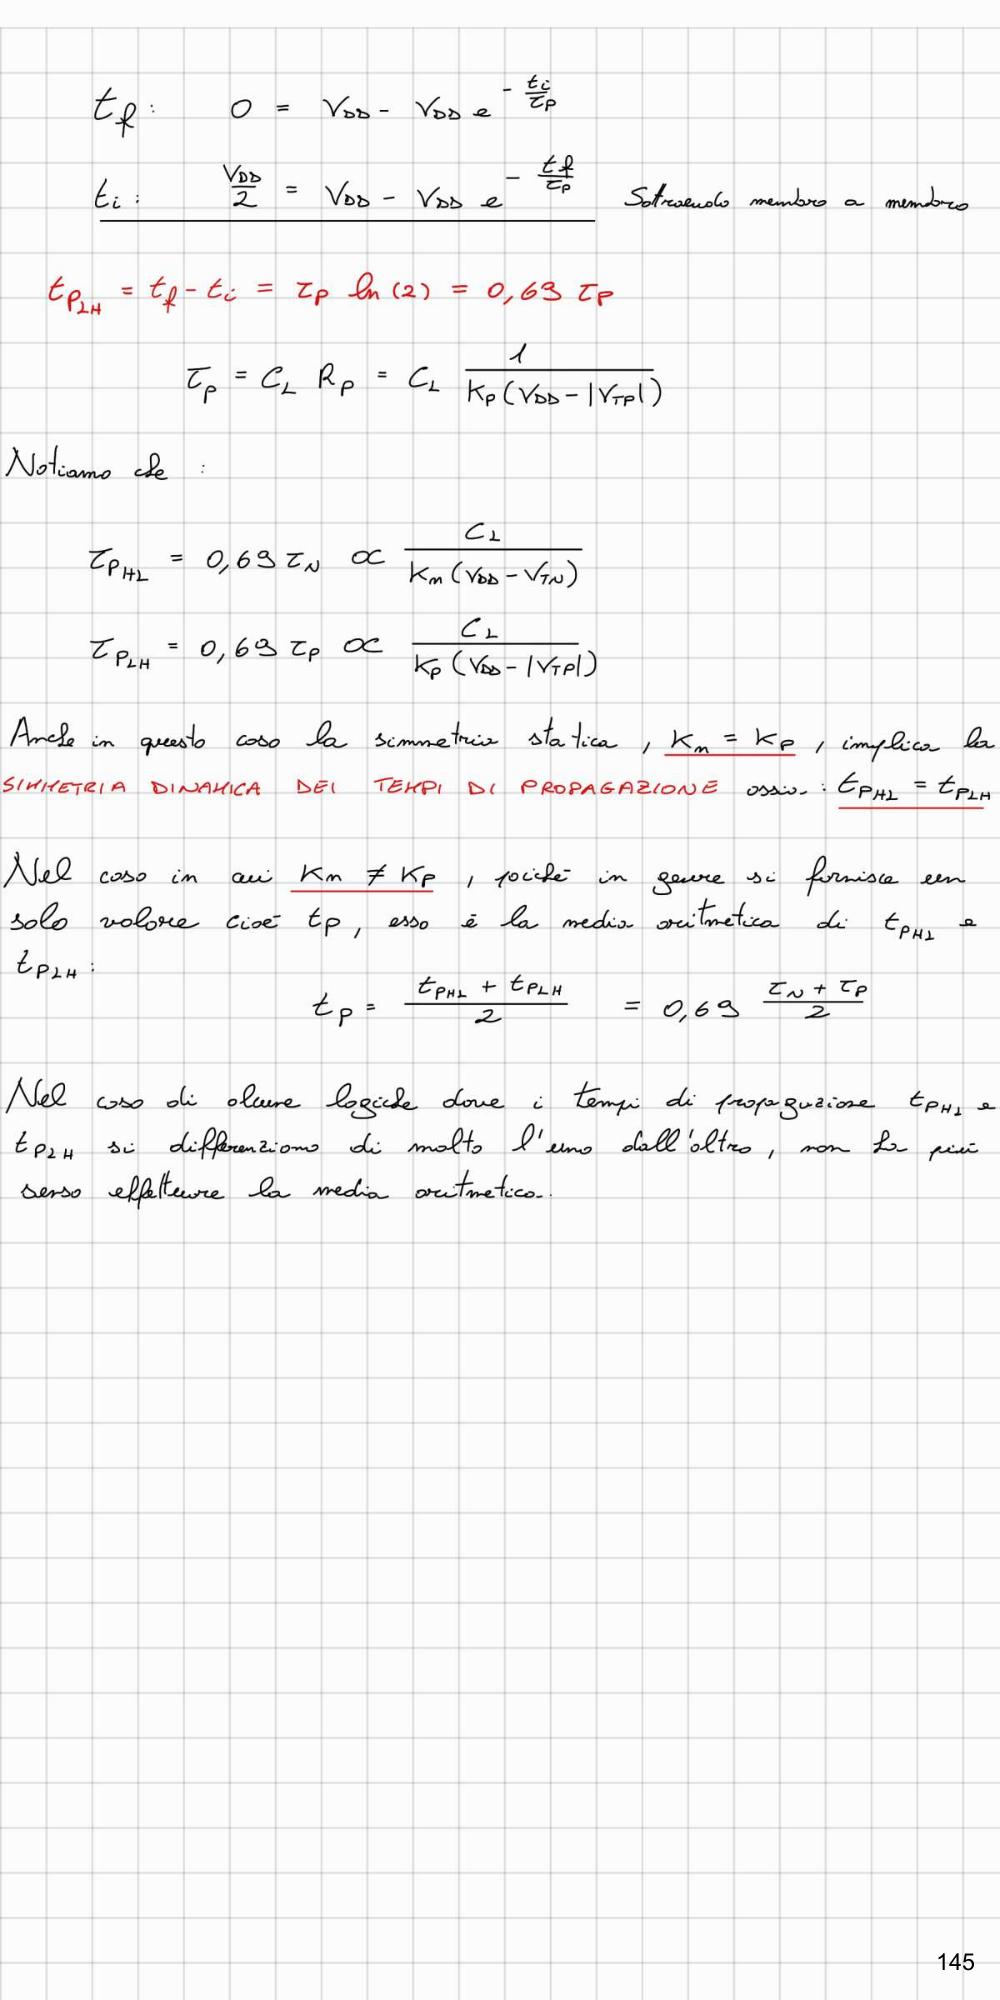 t_f : 0 = V_DD - V_DD e^(-t_i/τ_P)
t_i : V_DD/2 = V_DD - V_DD e^(-t_f/τ_P) Sotraendo membro a membro
t_PLH = t_f - t_i = τ_P ln(2) = 0,69 τ_P
τ_P = C_L R_P = C_L 1/(K_P(V_DD - |V_TP|))
Notiamo che :
τ_PHL = 0,69 τ_N ∝ C_L/(K_m(V_DD - V_TN))
τ_PLH = 0,69 τ_P ∝ C_L/(K_P(V_DD - |V_TP|))
Anche in questo caso la simmetria statica , K_m = K_P , implica la
SIMMETRIA DINAMICA DEI TEMPI DI PROPAGAZIONE ossia : t_PHL = t_PLH
Nel caso in cui K_m ≠ K_P , poiché in genere si fornisce un
solo valore cioé t_P , esso é la media aritmetica di t_PHL e
t_PLH :
t_P = (t_PHL + t_PLH)/2 = 0,69 (τ_N + τ_P)/2
Nel caso di alcune logiche dove i tempi di propagazione t_PHL e
t_PLH si differenziano di molto l'uno dall'altro , non ha più
senso effettuare la media aritmetica.
145